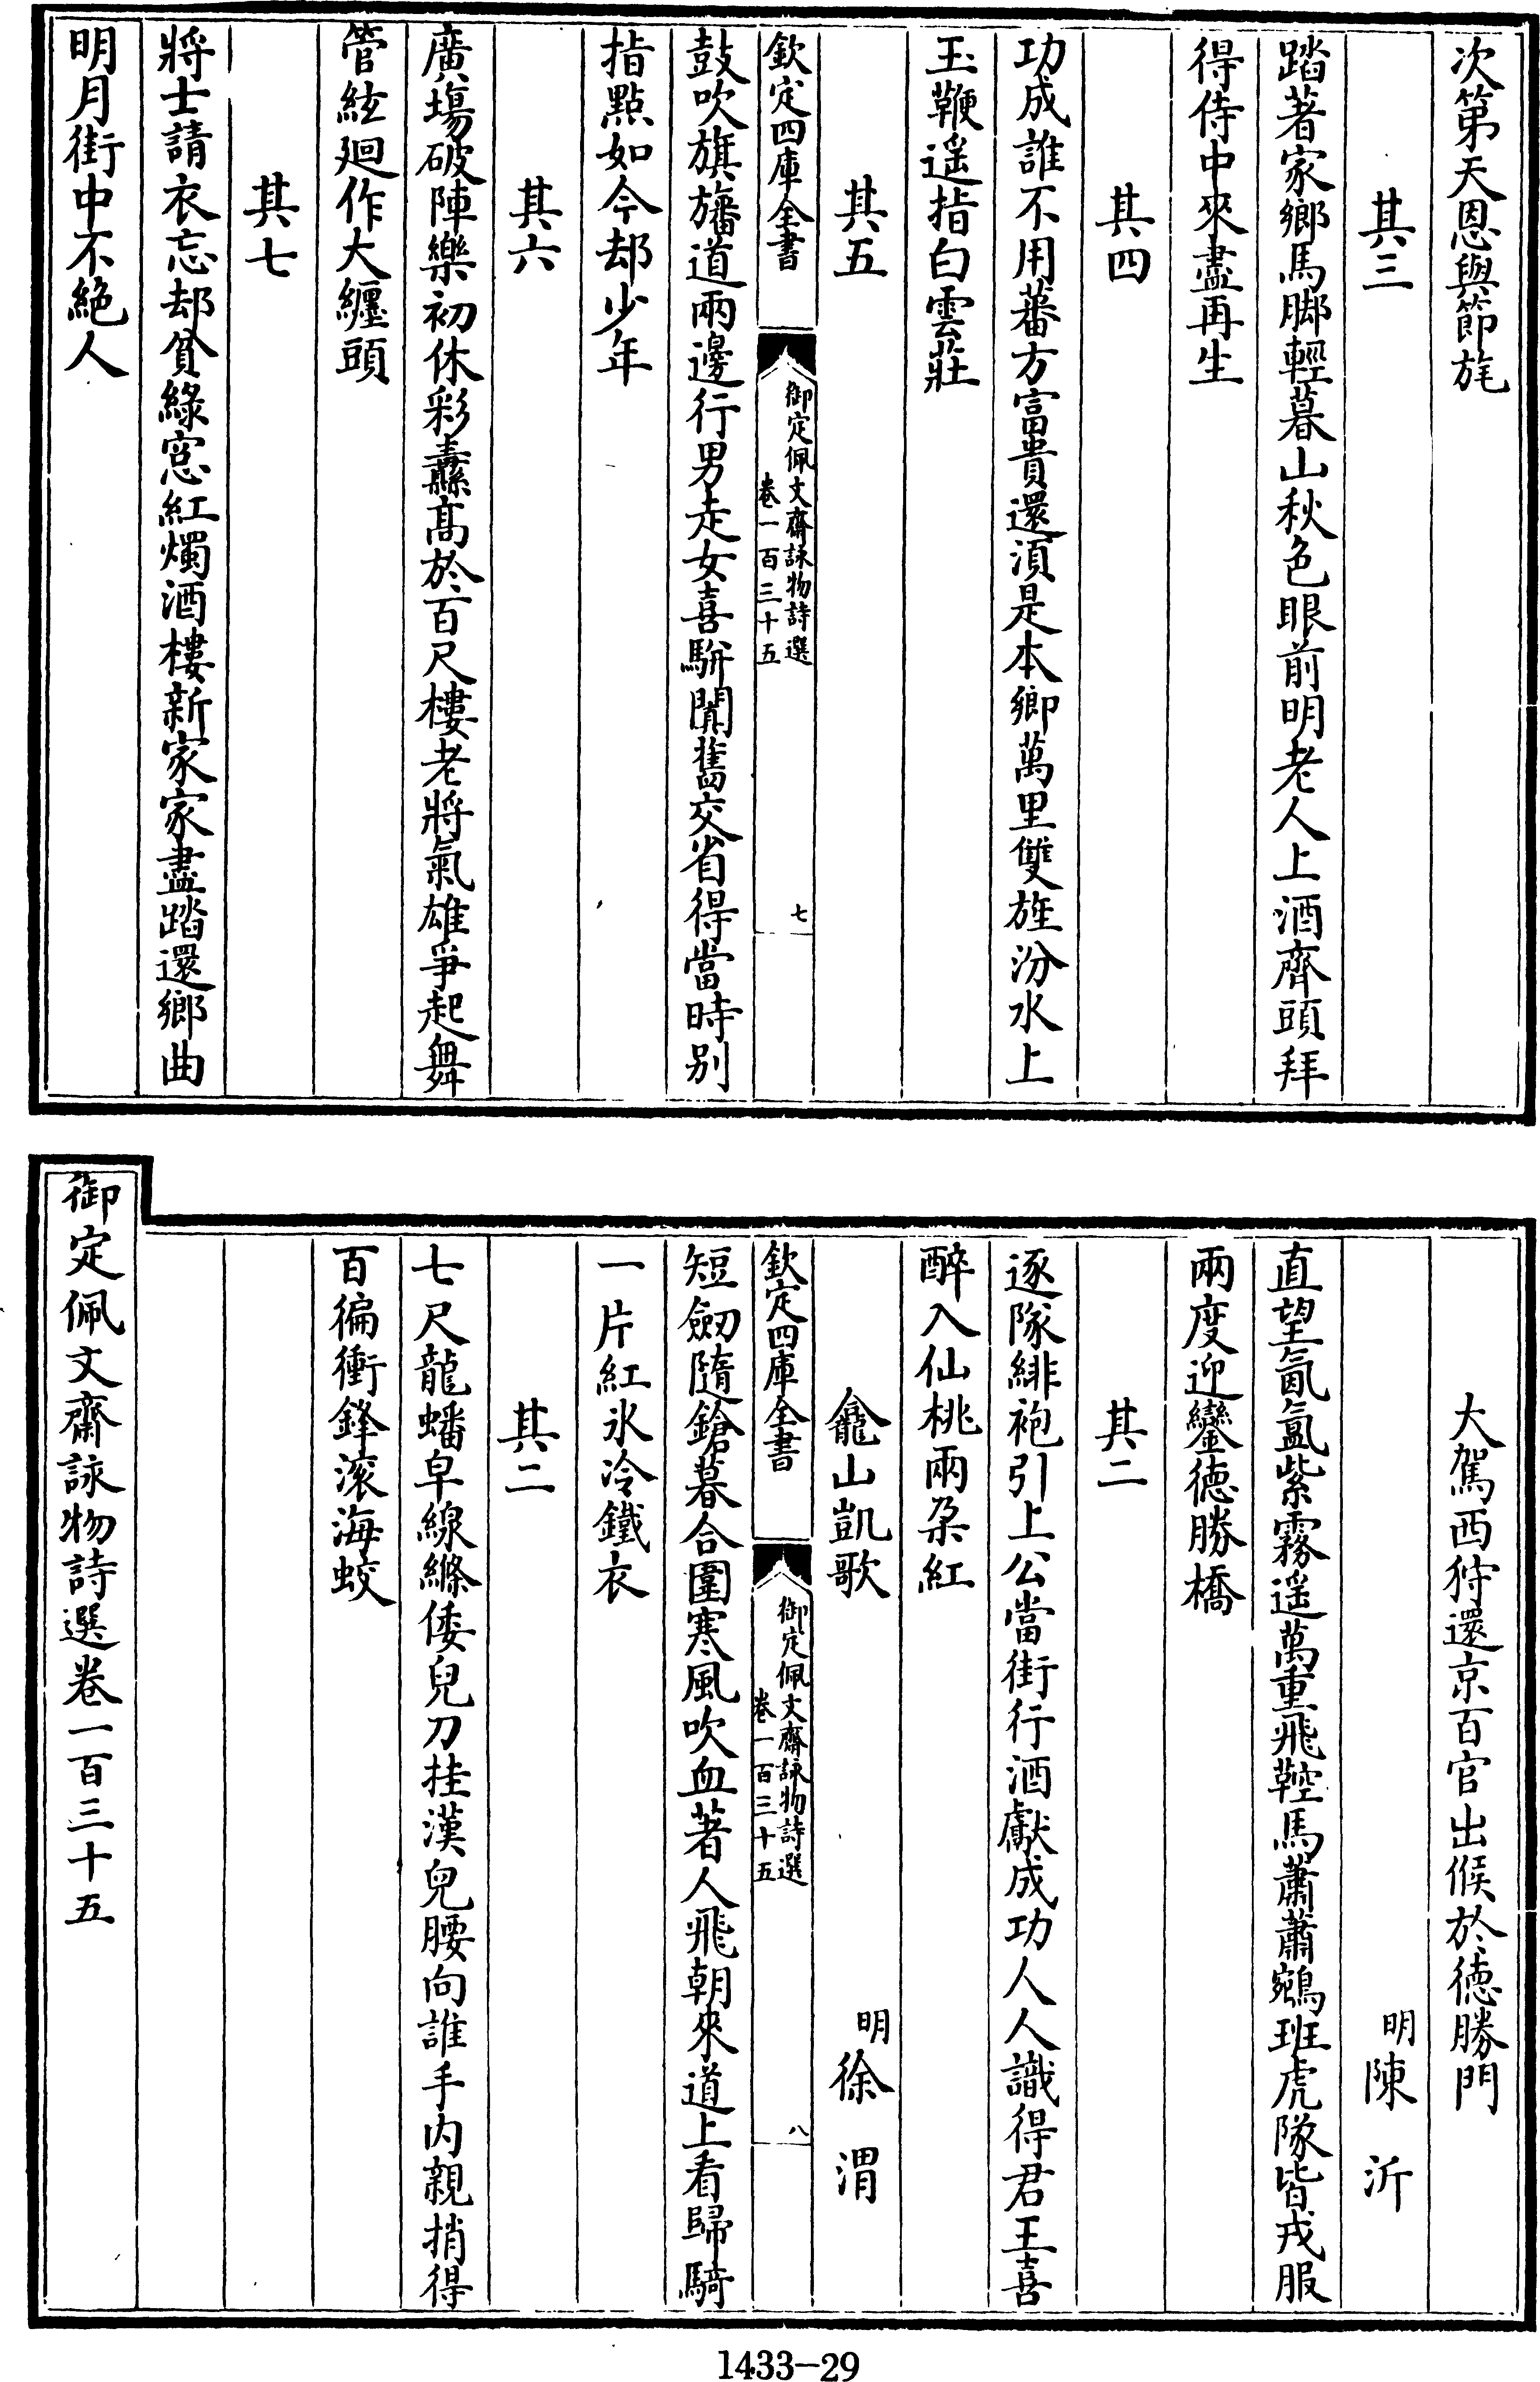 次第天恩與節旄
其三
踏著家鄉馬脚輕暮山秋色眼前明老人上酒齊頭拜
得侍中來盡再生
其四
功成誰不用蕃方富貴還須是本鄉萬里雙旌汾水上
玉鞭遥指白雲莊
其五
欽定四庫全書
御定佩文齋詠物詩選
卷一百三十五
七
鼓吹旗旛道兩邊行男走女喜駢闐舊交省得當時别
指點如今却少年
其六
廣塲破陣樂初休彩纛髙於百尺樓老將氣雄爭起舞
管絃廻作大纒頭
其七
將士請衣忘却貧綠窓紅燭酒樓新家家盡踏還鄉曲
明月街中不絶人
大駕西狩還京百官出候於德勝門
明陳沂
直望氤氲紫霧遥萬重飛鞚馬蕭蕭鵷班虎隊皆戎服
兩度迎鑾德勝橋
其二
逐隊緋袍引上公當街行酒獻成功人人識得君王喜
醉入仙桃兩朶紅
龕山凱歌
明徐渭
欽定四庫全書
御定佩文齋詠物詩選
卷一百三十五
八
短劒隨鎗暮合圍寒風吹血著人飛朝來道上看歸騎
一片紅氷冷鐵衣
其二
七尺龍蟠皁線縧倭兒刀挂漢兒腰向誰手内親捎得
百徧衝鋒滚海蛟
御定佩文齋詠物詩選卷一百三十五
1433-29